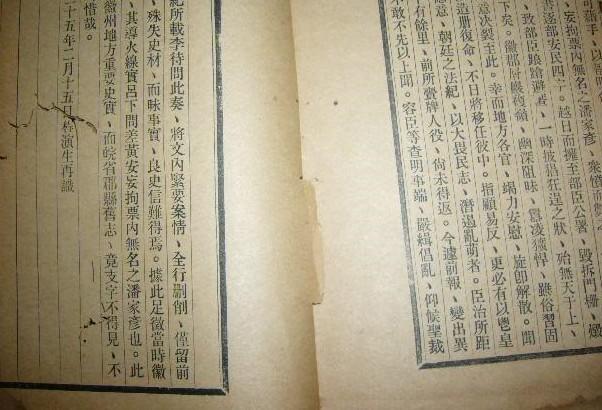 可藉手、以
妄拘票內無名之潘家彥、衆憤而
書逐部安民四字。越日而擁至部臣公署、毀拆門柵、燬
致部臣踰牆避、一時披猖狂逞之狀、殆無天于上、
下矣。徽郡層巖複嶺、幽深阻昧、囂凌獷悍、雖俗習固
意決裂至此。幸而地方各官、竭力安慰、旋卽解散。聞
造册復命、不日將移任彼中。指顧易反、更必有以慰皇
意、朝廷之法紀、以大畏民志、潛遏亂萌者。臣治所距
有餘里、前所賫牌人役、尙未得返。今遽前報、變出異
不敢不先以上聞。容臣等查明事端、嚴緝倡亂、仰候聖裁
紀所載李待問此奏、將文內緊要案情、全行删削、僅留前
、殊失史材、而昧事實、良史信難得焉。據此足徵當時徽
、其導火線實呂下問差黃安妄拘票內無名之潘家彥也。此
徽州地方重要史實、而皖省郡縣舊志、竟支字不得見、不
惜哉。
十五年二月十五日程演生再識